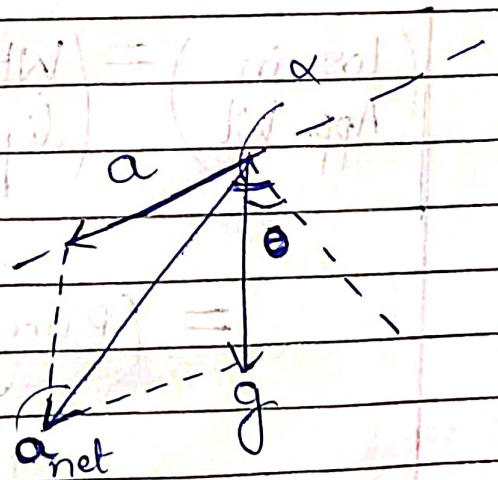 α
a
θ
g
a net